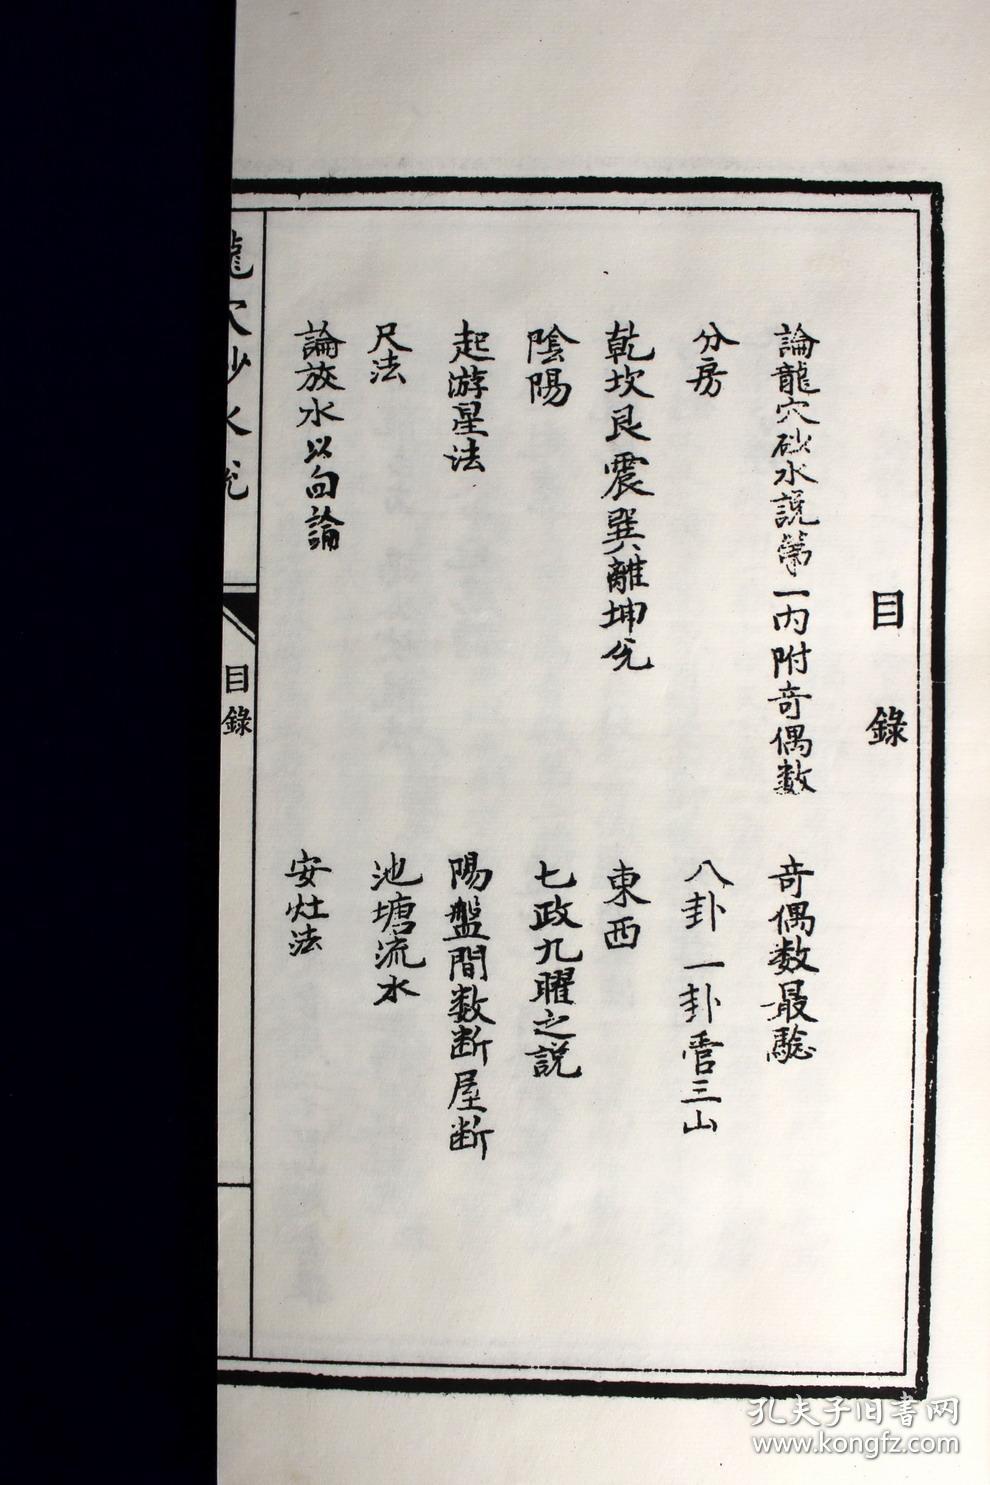 目錄
論龍穴砂水説第一内附奇偶数
奇偶数最驗
分房
八卦一卦管三山
乾坎艮震巽離坤兊
東西
陰陽
七政九曜之説
起游星法
陽盤間数断屋断
尺法
池塘流水
論放水以向論
安灶法
龍穴砂水説
目錄
孔夫子旧書网
www.kongfz.com